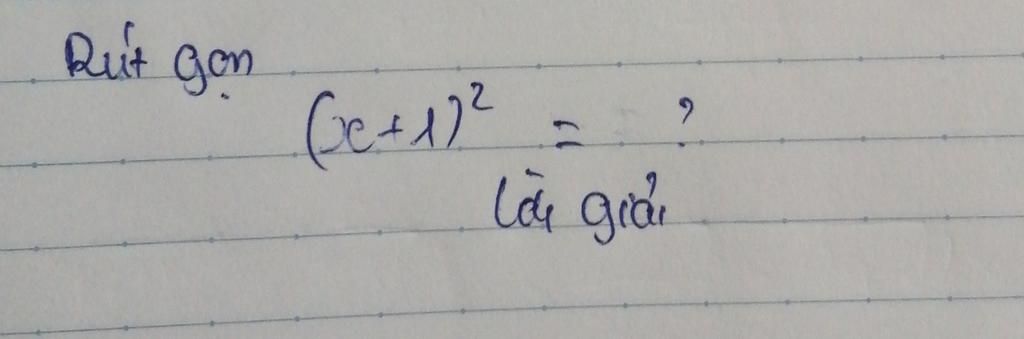 Rút gọn
(x+1)² = ?
Lời giải